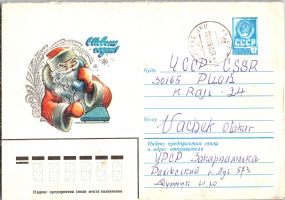 С Новым
годом!
СССР
Куда ЧССР - ČSSR
30165 Plzň
K Ráji - 24
Кому Vachek Otakar
Индекс предприятия связи и адрес отправителя
УРСР Закарпатська
Рахівський п. Луг 573
Индекс предприятия связи места назначения